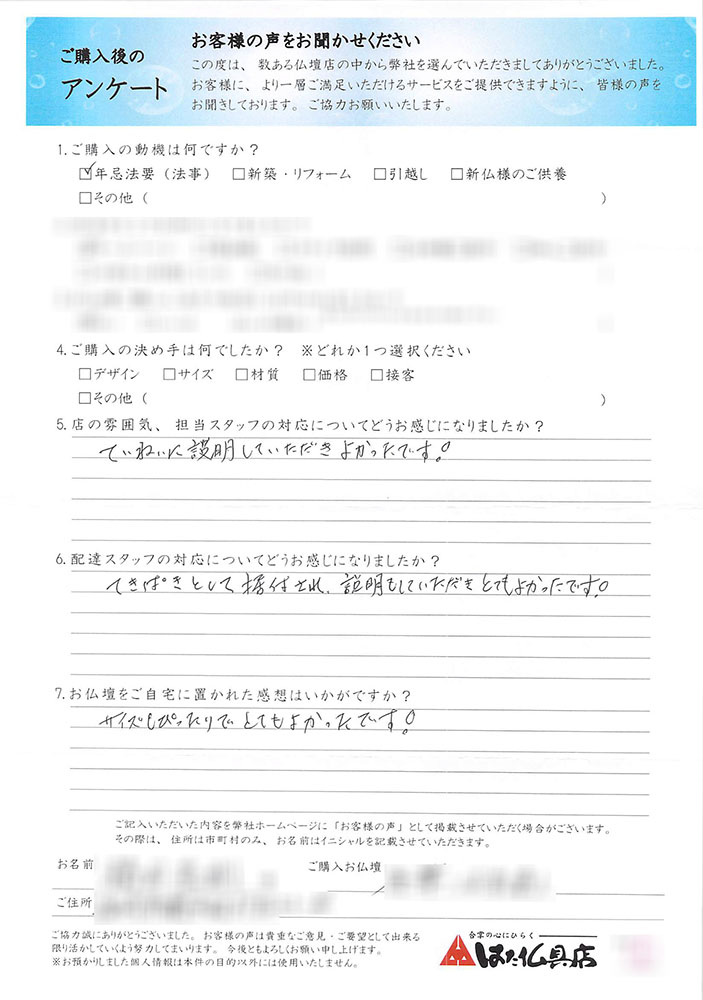 ご購入後の
アンケート
お客様の声をお聞かせください
この度は、数ある仏壇店の中から弊社を選んでいただきましてありがとうございました。
お客様に、より一層ご満足いただけるサービスをご提供できますように、皆様の声を
お聞きしております。ご協力お願いいたします。
1.ご購入の動機は何ですか？
☑年忌法要（法事） □新築・リフォーム □引越し □新仏様のご供養
□その他（ ）
4.ご購入の決め手は何でしたか？ ※どれか1つ選択ください
□デザイン □サイズ □材質 □価格 □接客
□その他（ ）
5.店の雰囲気、担当スタッフの対応についてどうお感じになりましたか？
ていねいに説明していただきよかったです！
6.配達スタッフの対応についてどうお感じになりましたか？
てきぱきとして据付され、説明もしていただきとてもよかったです！
7.お仏壇をご自宅に置かれた感想はいかがですか？
サイズもぴったりでとてもよかったです！
ご記入いただいた内容を弊社ホームページに「お客様の声」として掲載させていただく場合がございます。
その際は、住所は市町村のみ、お名前はイニシャルを記載させていただきます。
お名前 ご購入お仏壇
ご住所
ご協力誠にありがとうございました。お客様の声は貴重なご意見・ご要望として出来る
限り活かしていくよう努力してまいります。今後ともよろしくお願い申し上げます。
※お預かりしました個人情報は本件の目的以外には使用いたしません。
合掌の心にひらく
はた仏具店